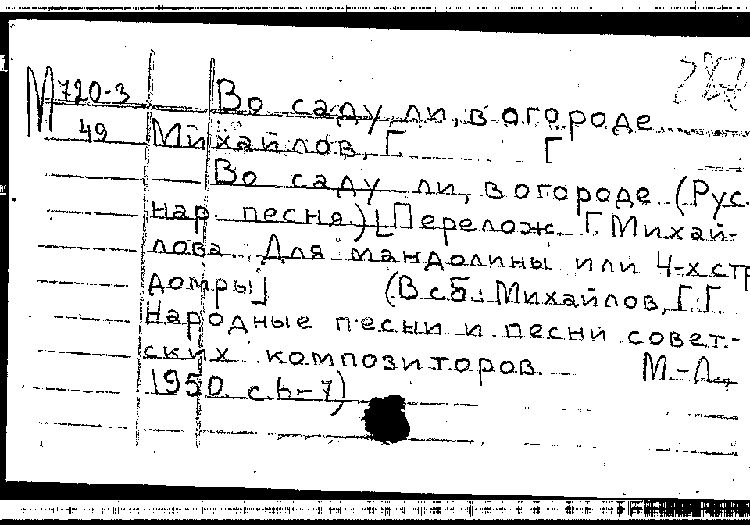 М 720-3
49
Во саду ли, в огороде
Михайлов, Г. Г
Во саду ли, в огороде. (Рус.
нар. песня.) [Перелож. Г. Михай-
лова. Для мандолины или 4-х стр
домры] (В сб.: Михайлов, Г. Г.
Народные песни и песни совет-
ских композиторов. М.-Л.,
1950. с. 6-7)